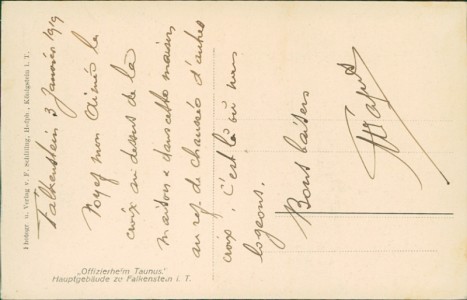 Falkenstein 3 Janvier 1919
Voyez mon Aimée la
croix au dessus de la
maison & dans cette maison
au rez. de chaussée d'autres
croix. C'est là où nous
logeons.
Bons baisers
„Offizierheim Taunus."
Hauptgebäude zu Falkenstein i. T.
Photogr. u. Verlag v. F. Schilling, Hofph., Königstein i. T.